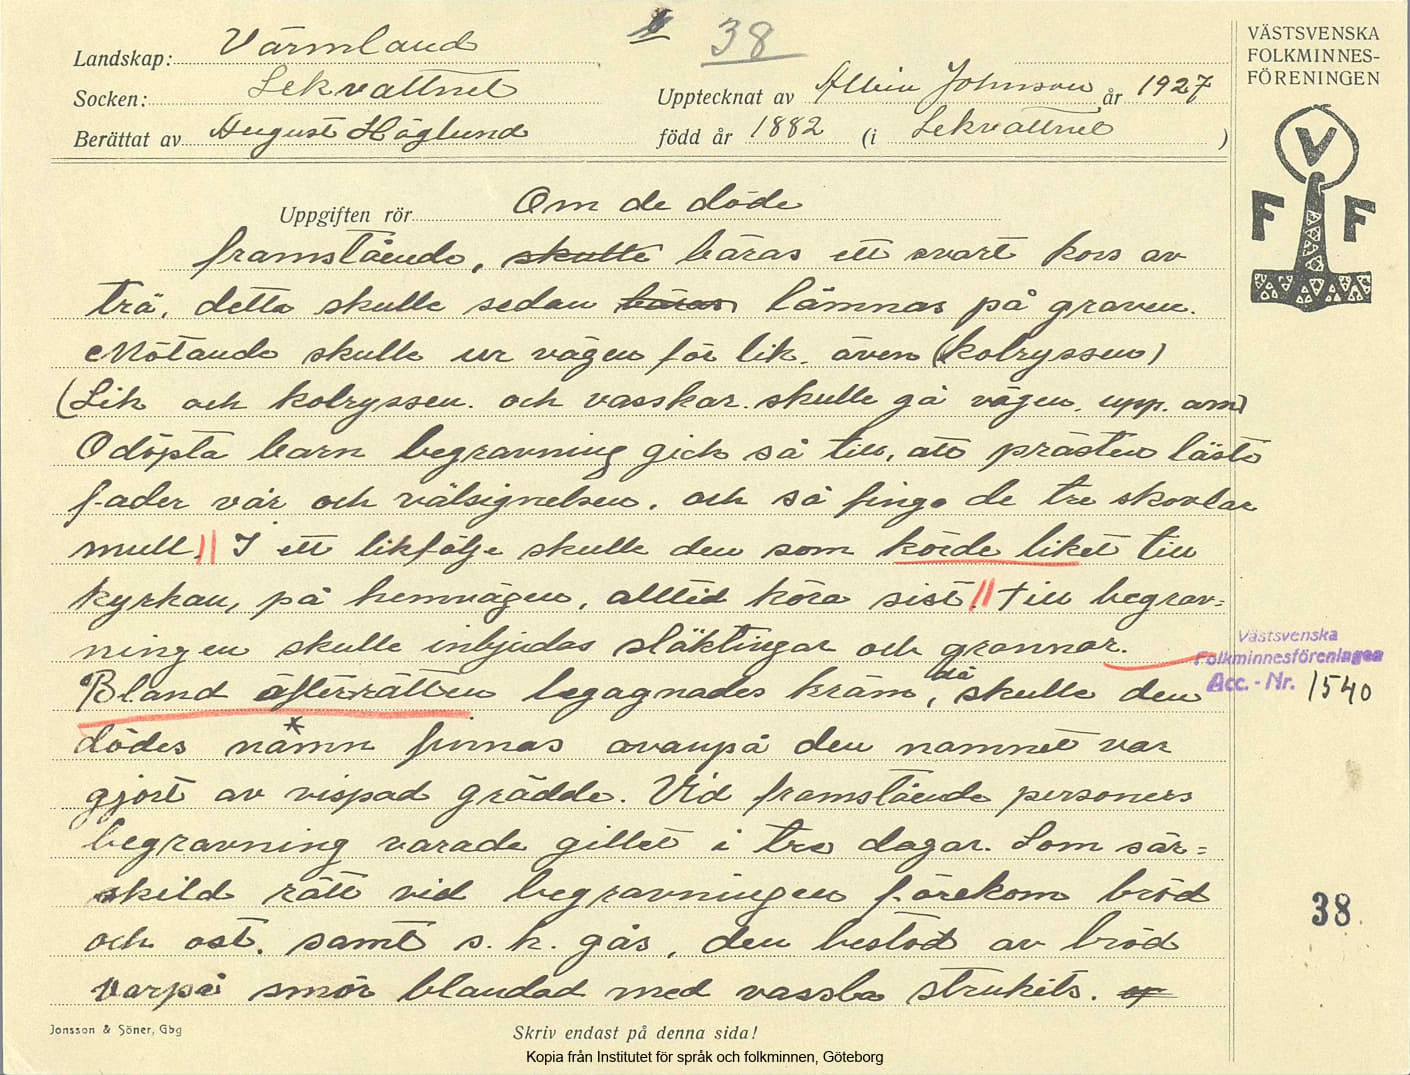 38
Landskap: Värmland
Socken: Lekvattnet
Upptecknat av Albin Johnson år 1927
Berättat av August Höglund
född år 1882 (i Lekvattnet )
VÄSTSVENSKA
FOLKMINNES-
FÖRENINGEN
V
F F
Uppgiften rör Om de döde
framstående, skulle bäras ett svart kors av
trä, detta skulle sedan bäras lämnas på graven.
Mötande skulle ur vägen för lik. även (kolryssen)
(Lik och kolryssen. och vasskar. skulle gå vägen. upp. om)
Odöpta barn begravning gick så till, att prästen läste
fader vår och välsignelsen. och så fingo de tre skovlar
mull. || I ett likfölje skulle den som körde liket till
kyrkan, på hemvägen, alltid köra sist. || till begrav=
ningen skulle inbjudas släktingar och grannar.
Bland äfterrätten begagnades kräm, då skulle den
dödes namn finnas ovanpå den namnet var
gjort av vispad grädde. Vid framstående personers
begravning varade gillet i tre dagar. Som sär=
skild rätt vid begravningen förekom bröd
och ost. samt s. k. gås, den bestod av bröd
varpå smör blandad med vassla strukits.
Västsvenska
Folkminnesföreningen
Acc.-Nr. 1540
38
Jonsson & Söner, Gbg
Skriv endast på denna sida!
Kopia från Institutet för språk och folkminnen, Göteborg